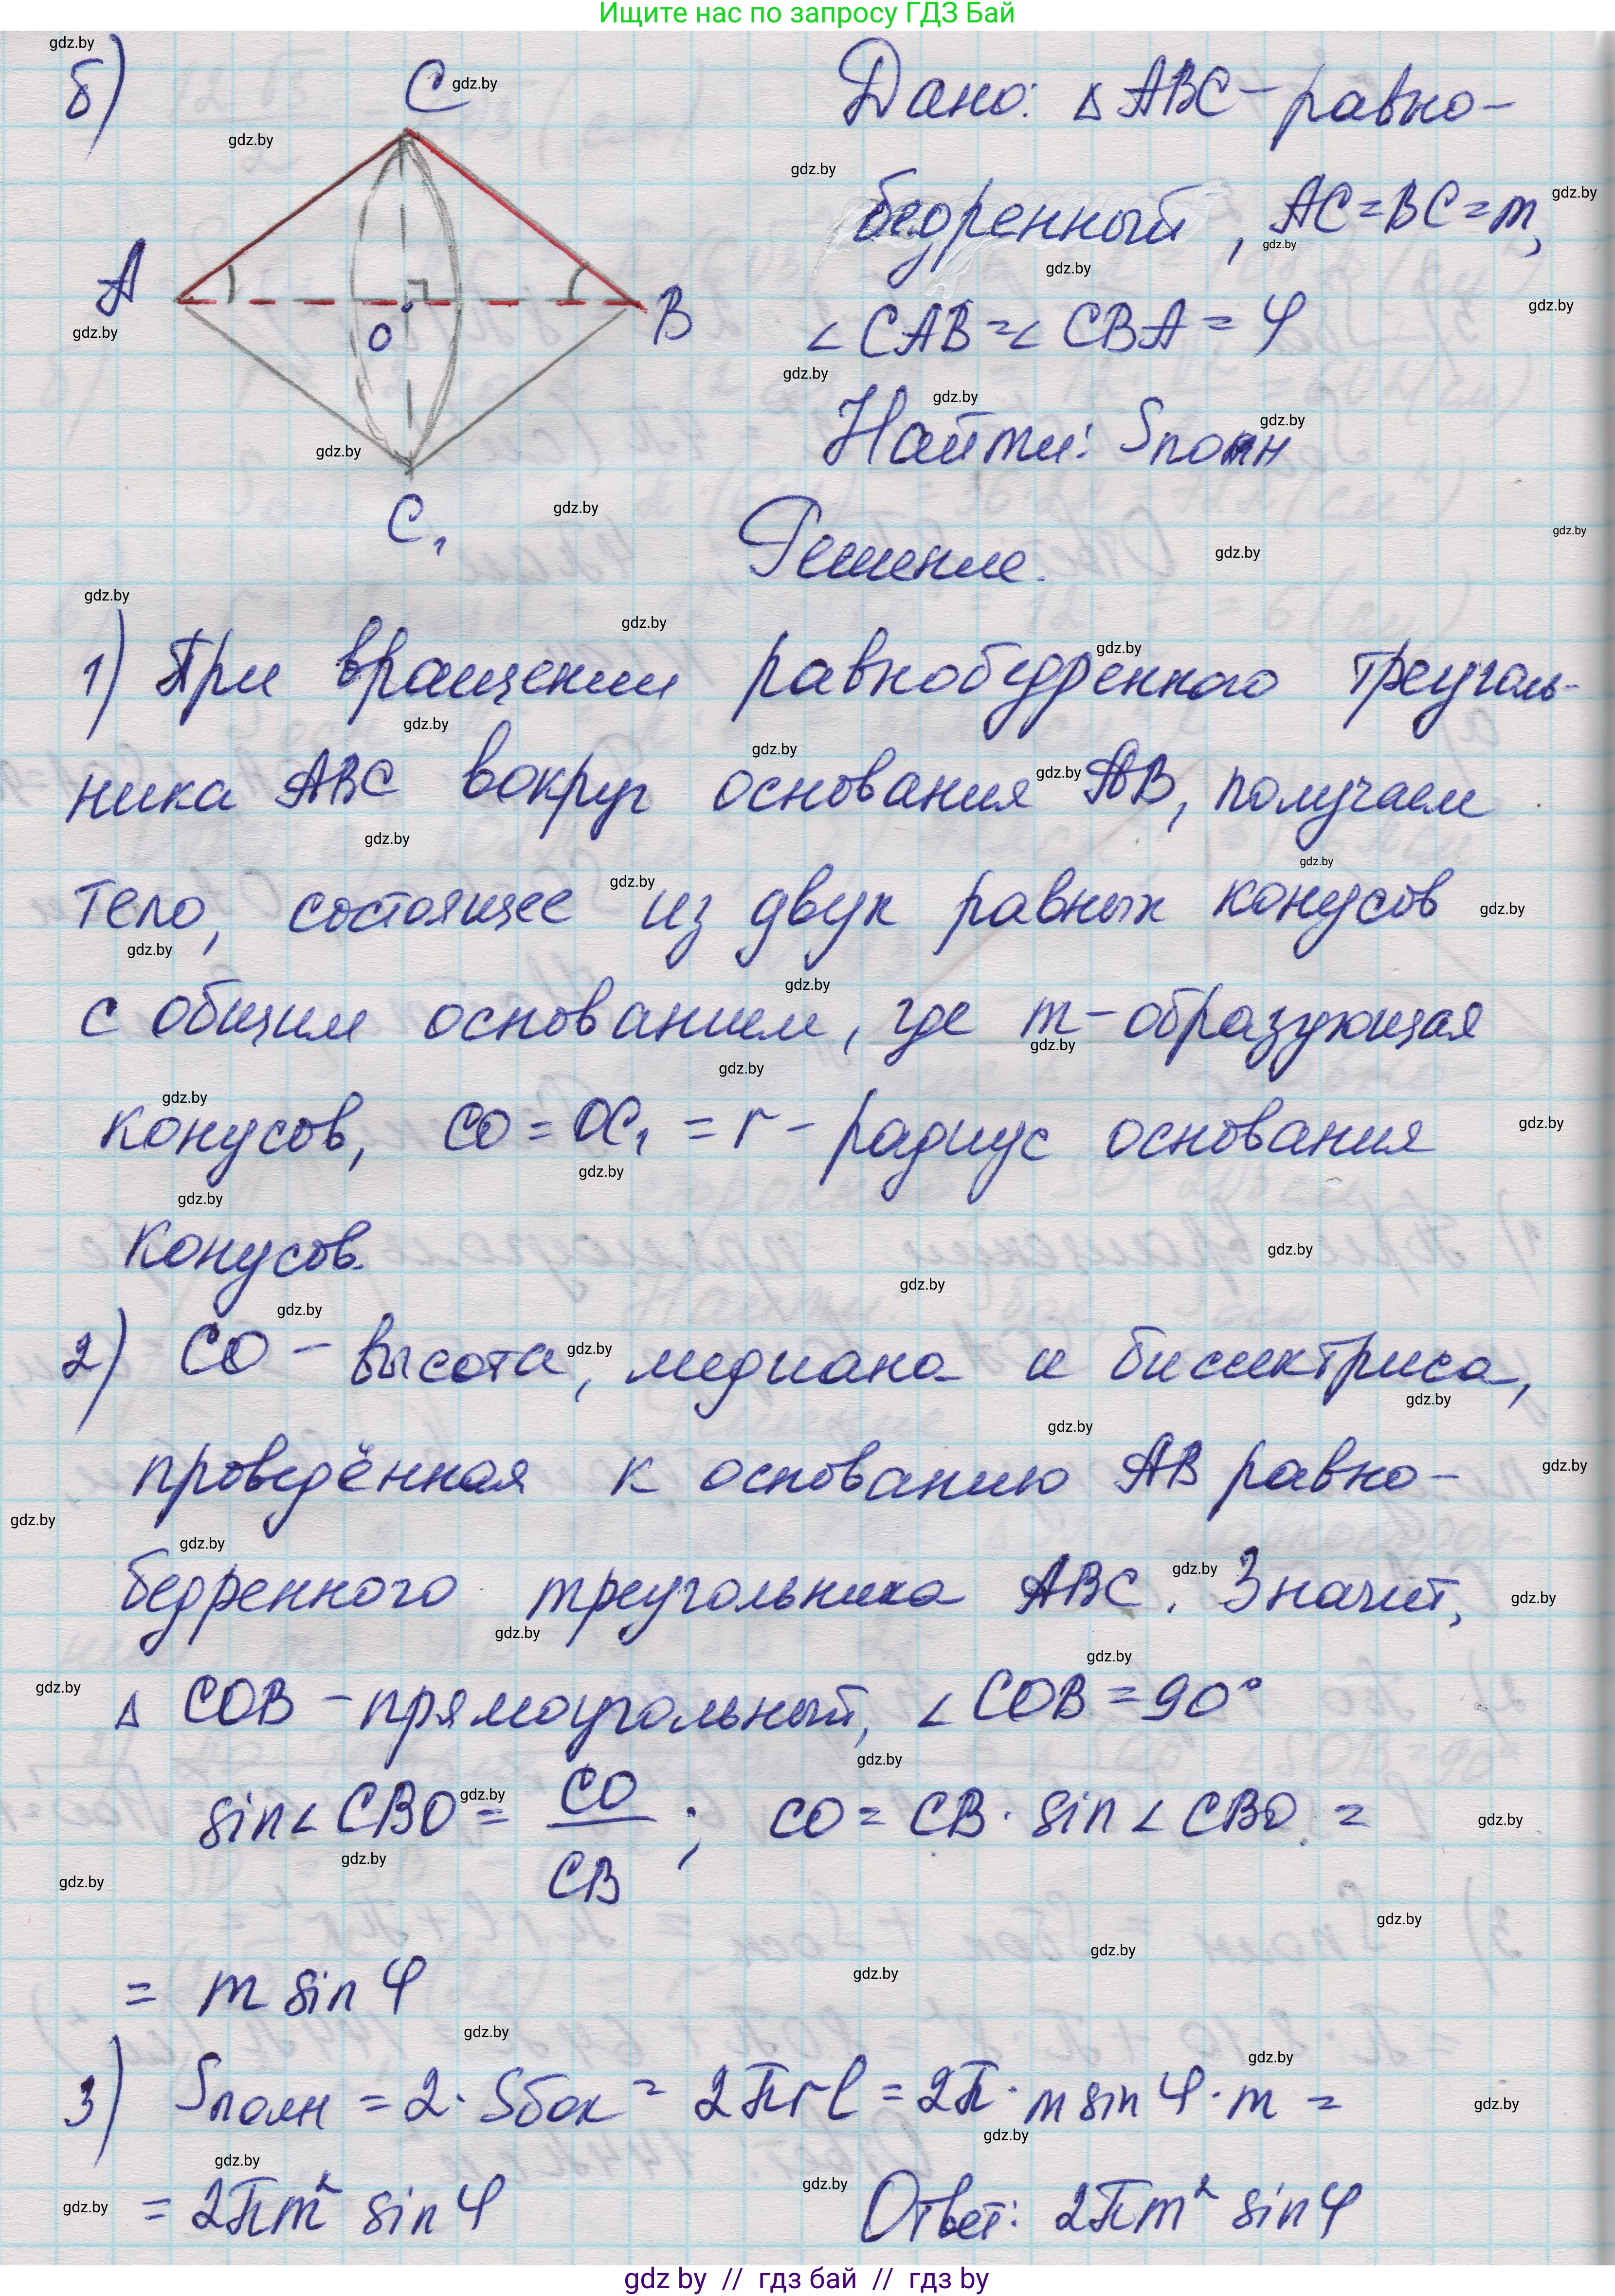 Ищите нас по запросу ГДЗ Бай
б)
C
A
O
B
C₁
Дано: △ ABC - равно-
бедренный, AC = BC = m,
∠ CAB = ∠ CBA = φ
Найти: Sполн
Решение.
1) При вращении равнобедренного треуголь-
ника ABC вокруг основания AB, получаем
тело, состоящее из двух равных конусов
с общим основанием, где m - образующая
конусов, CO = OC₁ = r - радиус основания
конусов.
2) CO - высота, медиана и биссектриса,
проведённая к основанию AB равно-
бедренного треугольника ABC. Значит,
△ COB - прямоугольный, ∠ COB = 90°
sin∠ CBO = CO/CB ; CO = CB · sin ∠ CBO =
= m sin φ
3) Sполн = 2 · Sбок = 2πrl = 2π · m sin φ · m =
= 2πm² sin φ
Ответ: 2πm² sin φ
gdz by // гдз бай // гдз by